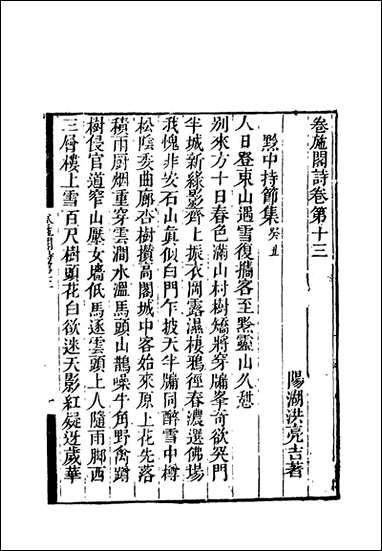 卷施閣詩卷第十三
陽湖洪亮吉著
黔中持節集癸丑
人日登東山遇雪復攜客至黔靈山久憩
別來方十日春色滿山村樹矯將穿牖峯奇欲突門
半城新綠影齊上振衣岡露濕棲鴉徑春濃選佛場
我愧非安石山眞似白門乍披天半牖同醉雪中樽
松陰委曲廊杏樹攢高閣城中客始來原上花先落
積雨厨烟重穿雲澗水溫馬頭山鵲噪牛角野禽蹲
樹侵官道窄山壓女墻低馬逐雲頭上人隨雨脚西
三層樓上雪百尺樹頭花白欲迷天影紅疑迓歲華